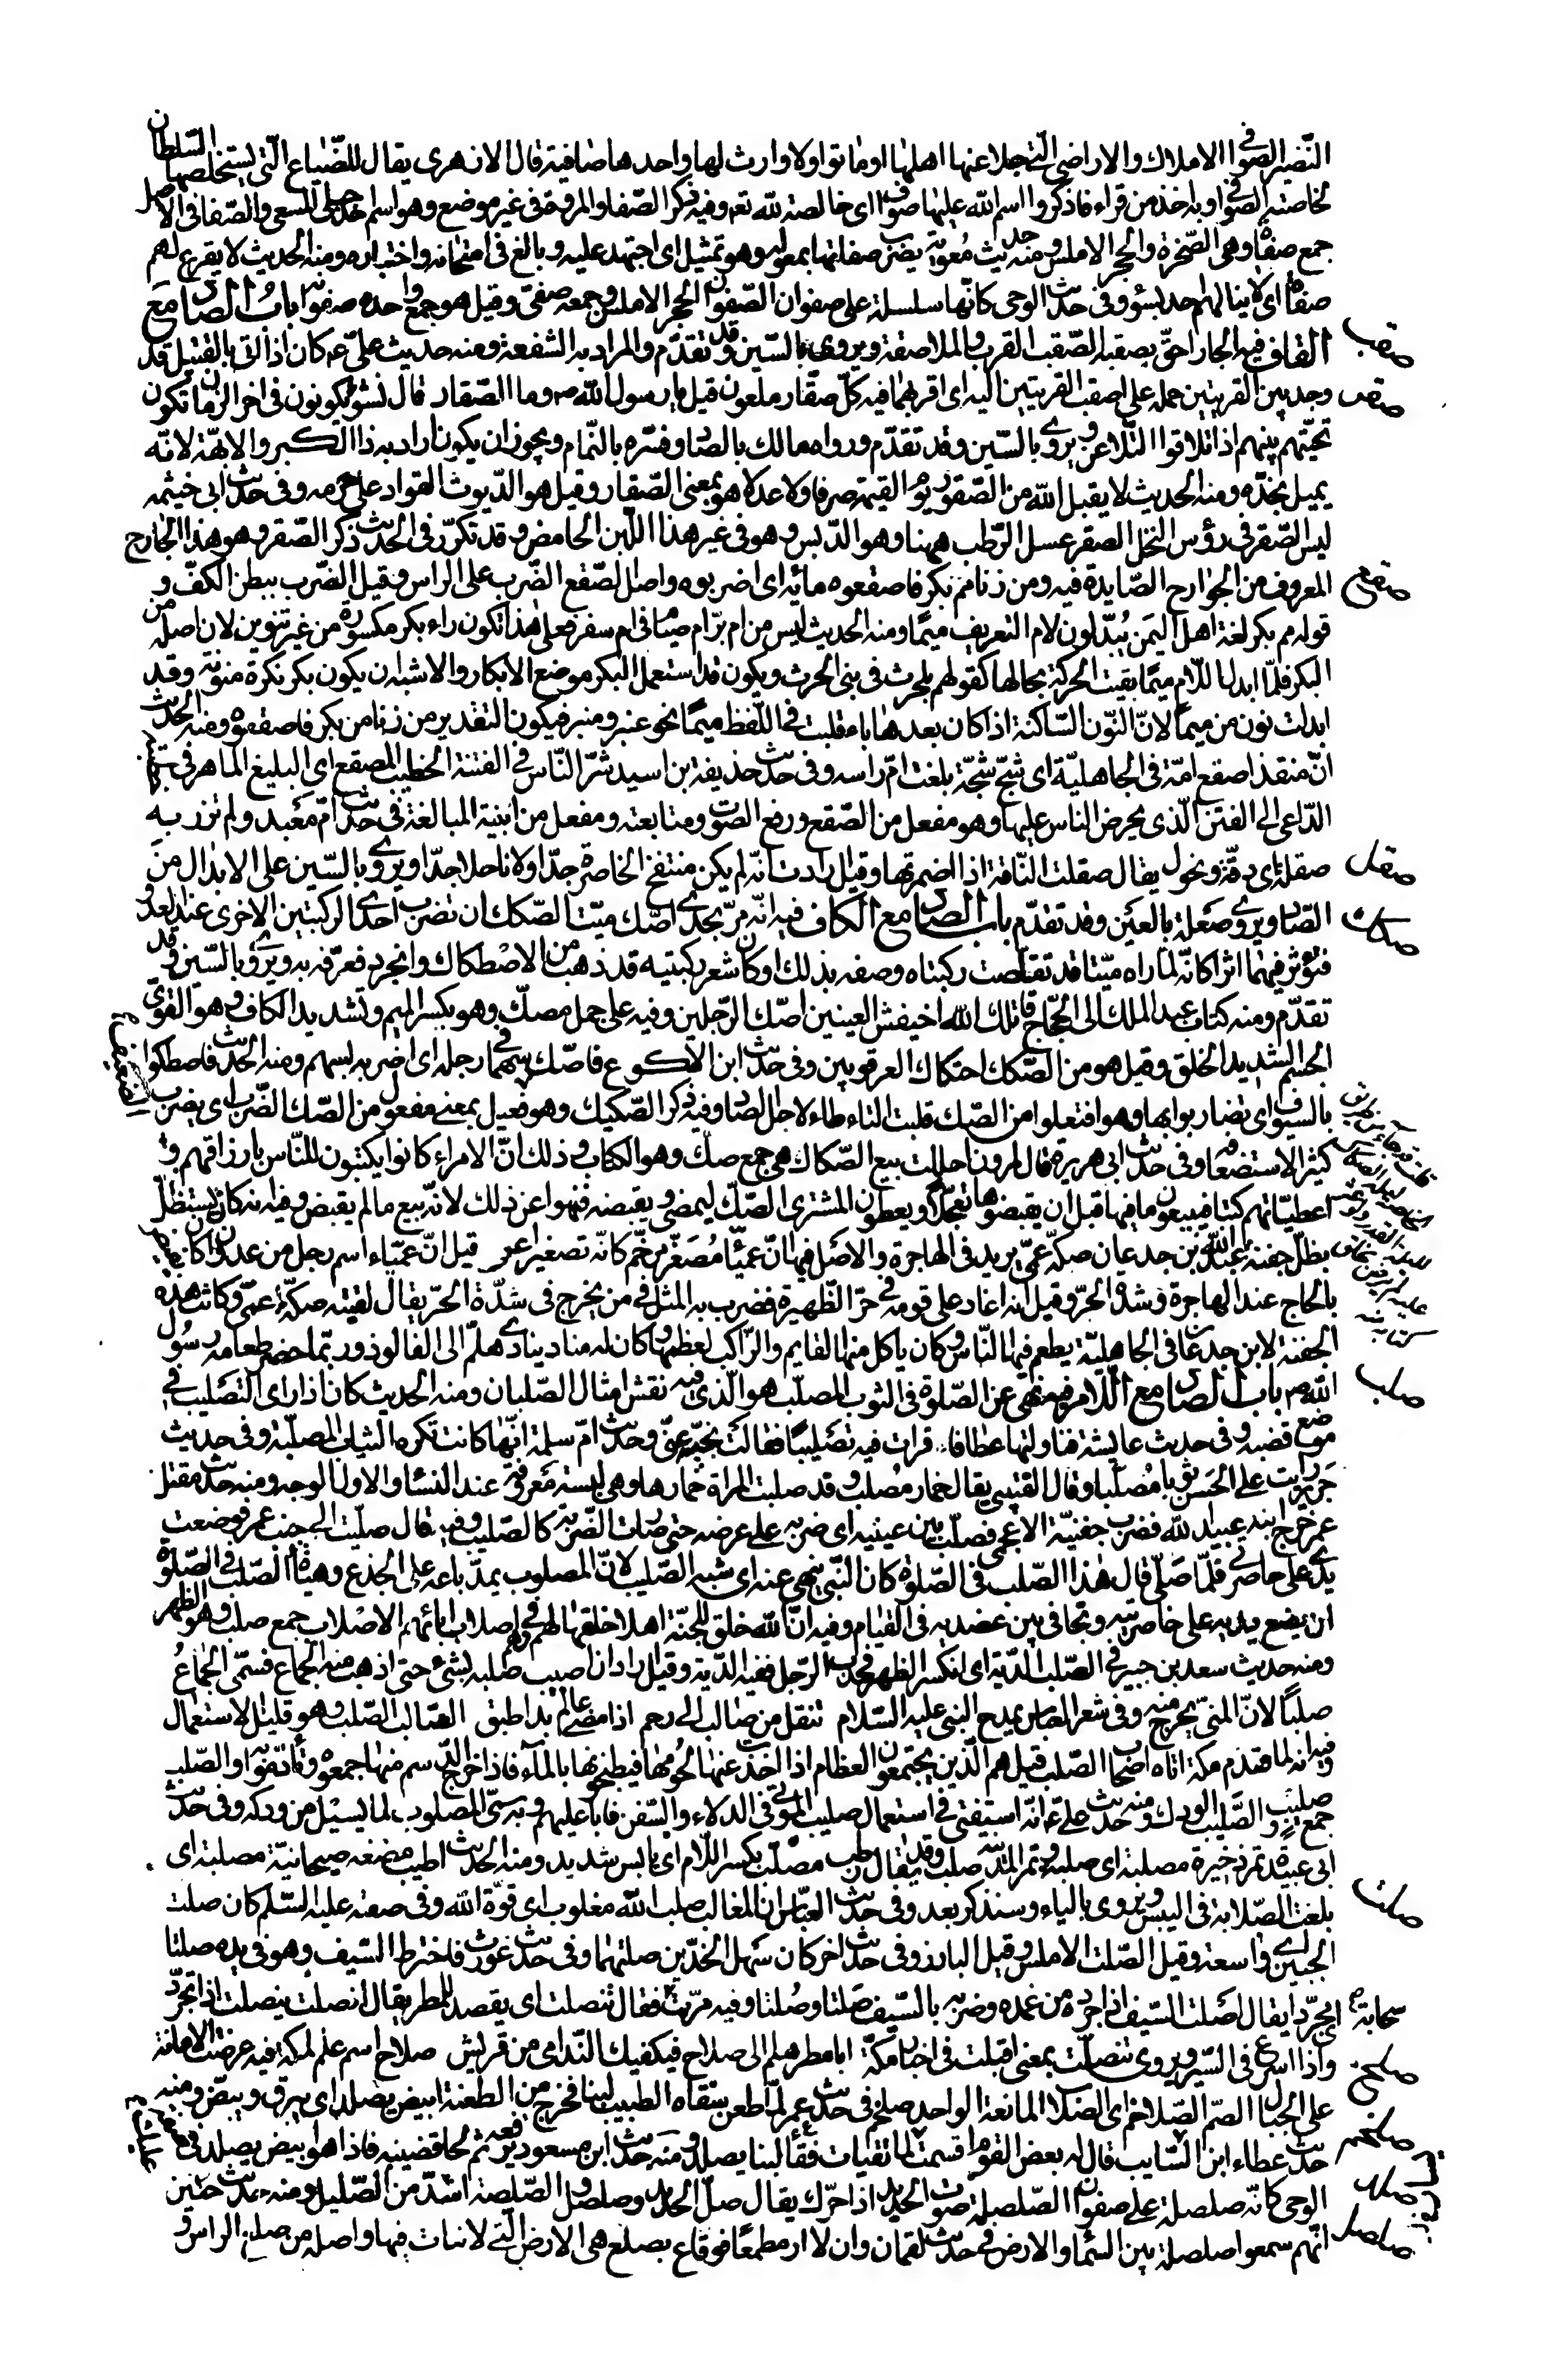 النّضر الصوافى الاملاك والاراضى الّتى جلا عنها اهلها او ماتوا ولا وارث لها واحدها صافية قال الازهرى يقال للضّياع الّتى يستخلصها السّلطان
لخاصّته الصوافى وبه اخذ من قراء فاذكروا اسم الله عليها صوافى اى خالصة لله تعا وفيه ذكر الصّفا والمروة فى غير موضع وهو اسم احد جبلى المسعى والصّفا فى الاصل
جمع صفاة وهى الصّخرة والحجر الاملس ومنه حديث معوية يضرب صفاتها بمعوله وهو تمثيل اى اجتهد عليه وبالغ فى امتحانه واختباره ومنه الحديث لا يقرع لهم
صفاة اى لا ينالهم احد بسؤ وفى حديث الوحى كانّها سلسلة على صفوان الصّفوان الحجر الاملس وجمعه صفىّ وقيل هو جمع واحده صفوانة باب الصاد مع
القاف فيه الجار احقّ بصقبه الصّقب القرب والملاصقة ويروى بالسّين وقد تقدّم والمراد به الشفعة ومنه حديث علىّ ع كان اذا اتى بالقتيل قد
وجد بين القريتين حمله على اصقب القريتين اليه اى اقربهما فيه كلّ صقّار ملعون قيل يا رسول الله ص وما الصّقار قال نشؤ يكونون فى اخر الزمان تكون
تحيّتهم بينهم اذا تلاقوا التّلاعن ويروى بالسّين وقد تقدّم ورواه مالك بالصاد وفسّره بالنّمام ويجوز ان يكون اراد به ذا الكبر والابهّة لانّه
يميل بخدّه ومنه الحديث لا يقبل الله من الصّقور يوم القيمة صرفا ولا عدلا هو بمعنى الصّقار وقيل هو الدّيوث القواد على حرمه وفى حديث ابى خيثمه
ليس الصّقر فى رؤس النخل الصقر عسل الرّطب ههنا وهو الدّبس وهو فى غير هذا اللّبن الحامض وقد تكرّر فى الحديث ذكر الصّقر وهو هذا الجارح
المعروف من الجوارح الصّايدة فيه ومن زنا مم بكر فاصقعوه مائة اى اضربوه واصل الصّقع الضّرب على الراس وقيل الضّرب ببطن الكفّ و
قوله مم بكر لغة اهل اليمن يُبدّلون لام التعريف ميمًا ومنه الحديث ليس من ام برّ ام صيام فى ام سفر فعلى هذا تكون راء بكر مكسورة من غير تنوين لان اصله من
البكر فلمّا ابدل اللّام ميمًا بقيت الحركة بحالها كقولهم بلحرث فى بنى الحرث ويكون قد استعمل البكر موضع الابكار والاشبه ان يكون بكر نكرة منونة وقد
ابدلت نون من ميمًا لانّ النّون السّاكنة اذا كان بعدها باء قلبت فى اللّفظ ميمًا نحو عنبر ومنبر فيكون التقدير من زنا من بكر فاصقعوه ومنه الحديث
انّ منقذا صقع امّة فى الجاهليّة اى شجّ شجّة بلغت امّ راسه وفى حديث حذيفة بن اسيد شرّ النّاس فى الفتنة الخطيب المصقع اى البليغ الماهر فى خطبته
الدّاعى الى الفتن الّذى يحرض الناس عليها وهو مفعل من الصّقع ورفع الصوت ومتابعته ومفعل من ابنية المبالغة فى حديث امّ معبد ولم تزر به
صقلة اى دقّة ونحول يقال صقلت النّاقة اذا اضمرتها وقيل ارادت انّه لم يكن منتفخ الخاصرة جدّا ولا ناحلا جدّا ويروى بالسّين على الابدال من
الصّاد ويروى صَعلة بالعين وقد تقدّم باب الصاد مع الكاف فيه انّه مرّ بجدى اصّك ميّتا الصّكك ان تضرب احدى الركبتين الاخرى عند العدو
فتؤثر فيهما اثرا كانّه لمّا راه ميّتا قد تقلّصت ركبتاه وصفه بذلك او كان شعر ركبتيه قد ذهب من الاصْطكاك وانجرد فعرّفه به ويروى بالسّين وقد
تقدّم ومنه كتاب عبد الملك الى الحجّاج قاتلك الله اخيفش العينين اصّك الرّجلين وفيه على جمل مصكّ وهو بكسر الميم وتشديد الكاف وهو القوىّ
الجسم الشديد الخلق وقيل هو من الصّكك احتكاك العرقوبين وفى حديث ابن الاكوع فاصّك سهما فى رجله اى اضربه بسهم ومنه الحديث فاصطكوا
بالسيوف اى تضاربوا بها وهو افتعلوا من الصّك قلبت التاء طاء لاجل الصاد وفيه ذكر الصّكيك وهو فعيل بمعنى مفعول من الصّك الضّرب اى يضرب
كثيرا لاستضعافه وفى حديث ابى هريرة قال لمرون احللت بيع الصّكاك هى جمع صكّ وهو الكتاب وذلك انّ الامراء كانوا يكتبون للنّاس بارزاقهم و
اعطيّاتهم كتبا فيبيعون ما فيها قبل ان يقبضوها تعجّلا ويعطون المشترى الصّكّ ليمضى ويقبضه فنهوا عن ذلك لانّه بيع ما لم يقبض وفيه انه كان يستظلّ
بظلّ جفنة عبد الله بن جدعان صكّة عمىّ يريد فى الهاجرة والاصل فيها انّ عميّا مُصَغّر مرخّم كانّه تصغير اعمى قيل انّ عميّاء اسم رجل من عدوان كان يفيض
بالحاج عند الهاجرة وشدّة الحرّ وقيل انه اغار على قومه فى حرّ الظّهيرة فضرب به المثل فى من يخرج فى شدّة الحرّ يقال لقيته صكّة عمىّ وكانت هذه
الجفنة لابن جدعان فى الجاهليّة يطعم فيها النّاس وكان ياكل منها القايم والرّاكب لعظمها وكان له مناد ينادى هلمّ الى الفالوذ وربّما حضر طعامه رسُول
الله ص باب الصاد مع اللّام فيه نهى عن الصّلوة فى الثوب المصلّب هو الّذى فيه نقش امثال الصّلبان ومنه الحديث كان اذا راى التّصليب فى
موضع قضبه وفى حديث عايشة فناولتها عطافا فرات فيه تصليبًا فقالت نحّيه عنّى وحديث امّ سلمة انّها كانت تكره الثياب المصلّبة وفى حديث
جرير رايت على الحسن ثوبا مُصلّبا وقال القتيبى يقال خمار مُصلب وقد صلبت المراة خمارها وهى لبسة معروفة عند النساء والاول الوجه ومنه حديث مقتل
عمر خرج ابنه عبيد الله فضرب جفنيّة الاعجمى فصلّب بين عينيه اى ضربه على عرضه حتى صارت الضّربة كالصّليب وفيه قال صلّيت الى جنب عمر فوضعت
يدى على خاصرتى فلمّا صلّى قال هذا الصّلب فى الصّلوة كان النّبى ينهى عنه اى شبه الصّليب لانّ المصلوب يمدّ باعه على الجذع وهيئة الصّلب فى الصّلوة
ان يضع يديه على خاصرتيه ويجافى بين عضديه فى القيام وفيه انّ الله خلق للجنّة اهلا خلقها لهم وهم فى اصلاب ابائهم الاصْلاب جمع صلب وهو الظهر
ومنه حديث سعيد بن جبير فى الصّلب الدّية اى انكسر الظهر فحدب الرّجل ففيه الدّية وقيل اراد ان اصيب صلبه بشئ حتى اذهب منه الجماع فسمّى الجماعُ
صلبًا لانّ المنىّ يخرج منه وفى شعر العباس يمدح النبى عليه السّلام تنقل من صالب الى رحم اذا مضى عالم بدا طبق الصّالب الصّلب وهو قليل الاستعمال
وفيه انه لما قدم مكة اتاه اصحاب الصّلب قيل هم الّذين يجتمعون العظام اذا اخذت عنها لحُومها فيطبخونها بالماء فاذا خرج الدّسم منها جمعوه وتأدّموا به والصّلب
جمع صليب والصَّليب الودك ومنه حديث علىّ ع انّه استفتى فى استعمال صليب الموتى فى الدلاء والسّفن فابا عليهم وبه سمّى المصلوب لما يسيل من ودكه وفى حديث
ابى عبيدة تمر ذخيرة مصلبة اى صلبة وتمر المدينة صلب وقد يقال رطب مصلّب بكسر اللّام اى يابس شديد ومنه الحديث اطيب مضغه صيحانيّة مصلبة اى
بلغت الصّلابة فى اليبس ويروى بالياء وسنذكر بعد وفى حديث العبّاس ان المغالب صلب الله مغلوب اى قوّة الله وفى صفته عليه السّلم كان صلت
الجبين اى واسعة وقيل الصّلت الاملس وقيل البارز وفى حديث اخر كان سهل الخدّين صلتهما وفى حديث غورث فاخترط السّيف وهو فى يده صلتا
اى مجرّدا يقال اصلت السّيف اذا جرّده من غمده وضربه بالسّيف صَلتا وصُلتا وفيه مرّت سحابة فقال تنصلت اى يقصد للمطر يقال انصلت ينصلت اذا تجرّد
واذا اسرع فى السّير ويروى تنصلت بمعنى اقبلت فى اخبار مكّة ابا مطر هلم الى صلاح فيكفيك النّدامى من قريش صلاح اسم علم لمكّة فيه عرضت الامانة
على الجبال الصّم الصّلاخم اى الصّلاب المانعة الواحد صلخم فى حديث عمر لمّا طعن سقاه الطبيب لبنا فخرج من الطعنة ابيض يصلد اى يبرق ويبصّ ومنه
حديث عطاء ابن السّايب قال له بعض القوم اقسمت لما تقيات فقاء لبنا يصلد ومنه حديث ابن مسعود يرفعه ثم لحا قضيبه فاذا هو ابيض يصلد فى حديث
الوحى كانّه صلصلة على صفوان الصّلصلة صوت الحديد اذا حرّك يقال صلّ الحديد وصلصل والصّلصلة اشدّ من الصّليل ومنه حديث حنين
انّهم سمعوا صلصلة بين السّماء والارض فى حديث لقمان وان لا ار مطمعًا فوقاع بصلع هى الارض الّتى لا نبات فيها واصله من صلع الراس و
صقب
صقر
صقع
صقل
صكك
صلب
صلت
سحابة
صلح
صلخم
صلد
صلصل